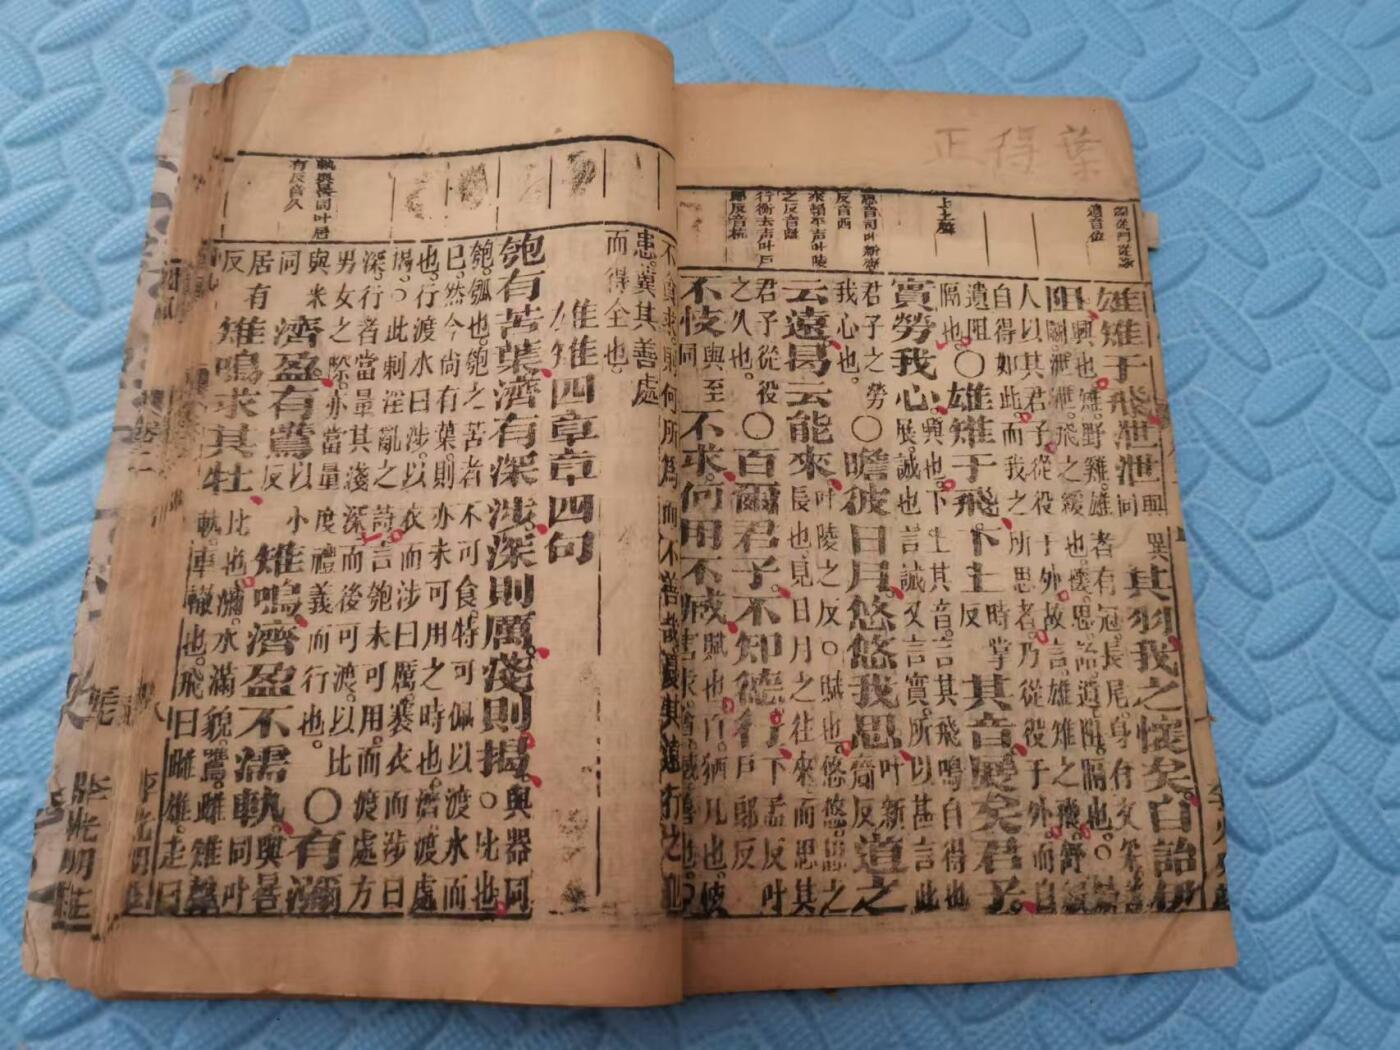 葉得正
遺音位
上上聲
思音司叶新齎反音西
來韻平聲叶陵之反音離
行衡去声叶戶郎反音杭
雄雉于飛泄泄與異同其羽我之懷矣自詒伊
阻興也雉野雞雄者有冠長尾身有文采善
鬬泄泄飛之緩也懷思詒遺阻隔也○
人以其君子從役于外故言雄雉之飛舒緩
自得如此而我之所思者乃從役于外而自
遺阻隔也○雄雉于飛下上時掌反其音展矣君子
實勞我心興也下上其音言其飛鳴自得也
展誠也言誠又言實所以甚言此
君子之勞我心也○瞻彼日月悠悠我思叶新齎反道之
云遠曷云能來叶陵之反○賦也悠悠思之
長也見日月之往來而思其
君子從役之久也○百爾君子不知德行下孟反叶戶郎反
不忮與至同不求何用不臧賦也百猶凡也忮害求
不貪求則何所為而不善哉憂其遠行之犯
患冀其善處而得全也
雄雉四章章四句
軌與晷同叶居有反音久
匏有苦葉濟有深涉深則厲淺則揭與器同○比也
匏瓠也匏之苦者不可食特可佩以渡水而
已然今尚有葉則亦未可用之時也濟渡處
也行渡水曰涉以衣而涉曰厲褰衣而涉曰
揭○此刺淫亂之詩言匏未可用而渡處方
深行者當量其淺深而後可渡以比
男女之際亦當量度禮義而行也○有瀰
與米同濟盈有鷕以小反雉鳴濟盈不濡軌與晷同叶
居有反雉鳴求其牡比也瀰水滿貌鷕雌雉聲
軌車轍也飛曰雌雄走曰
李光明莊